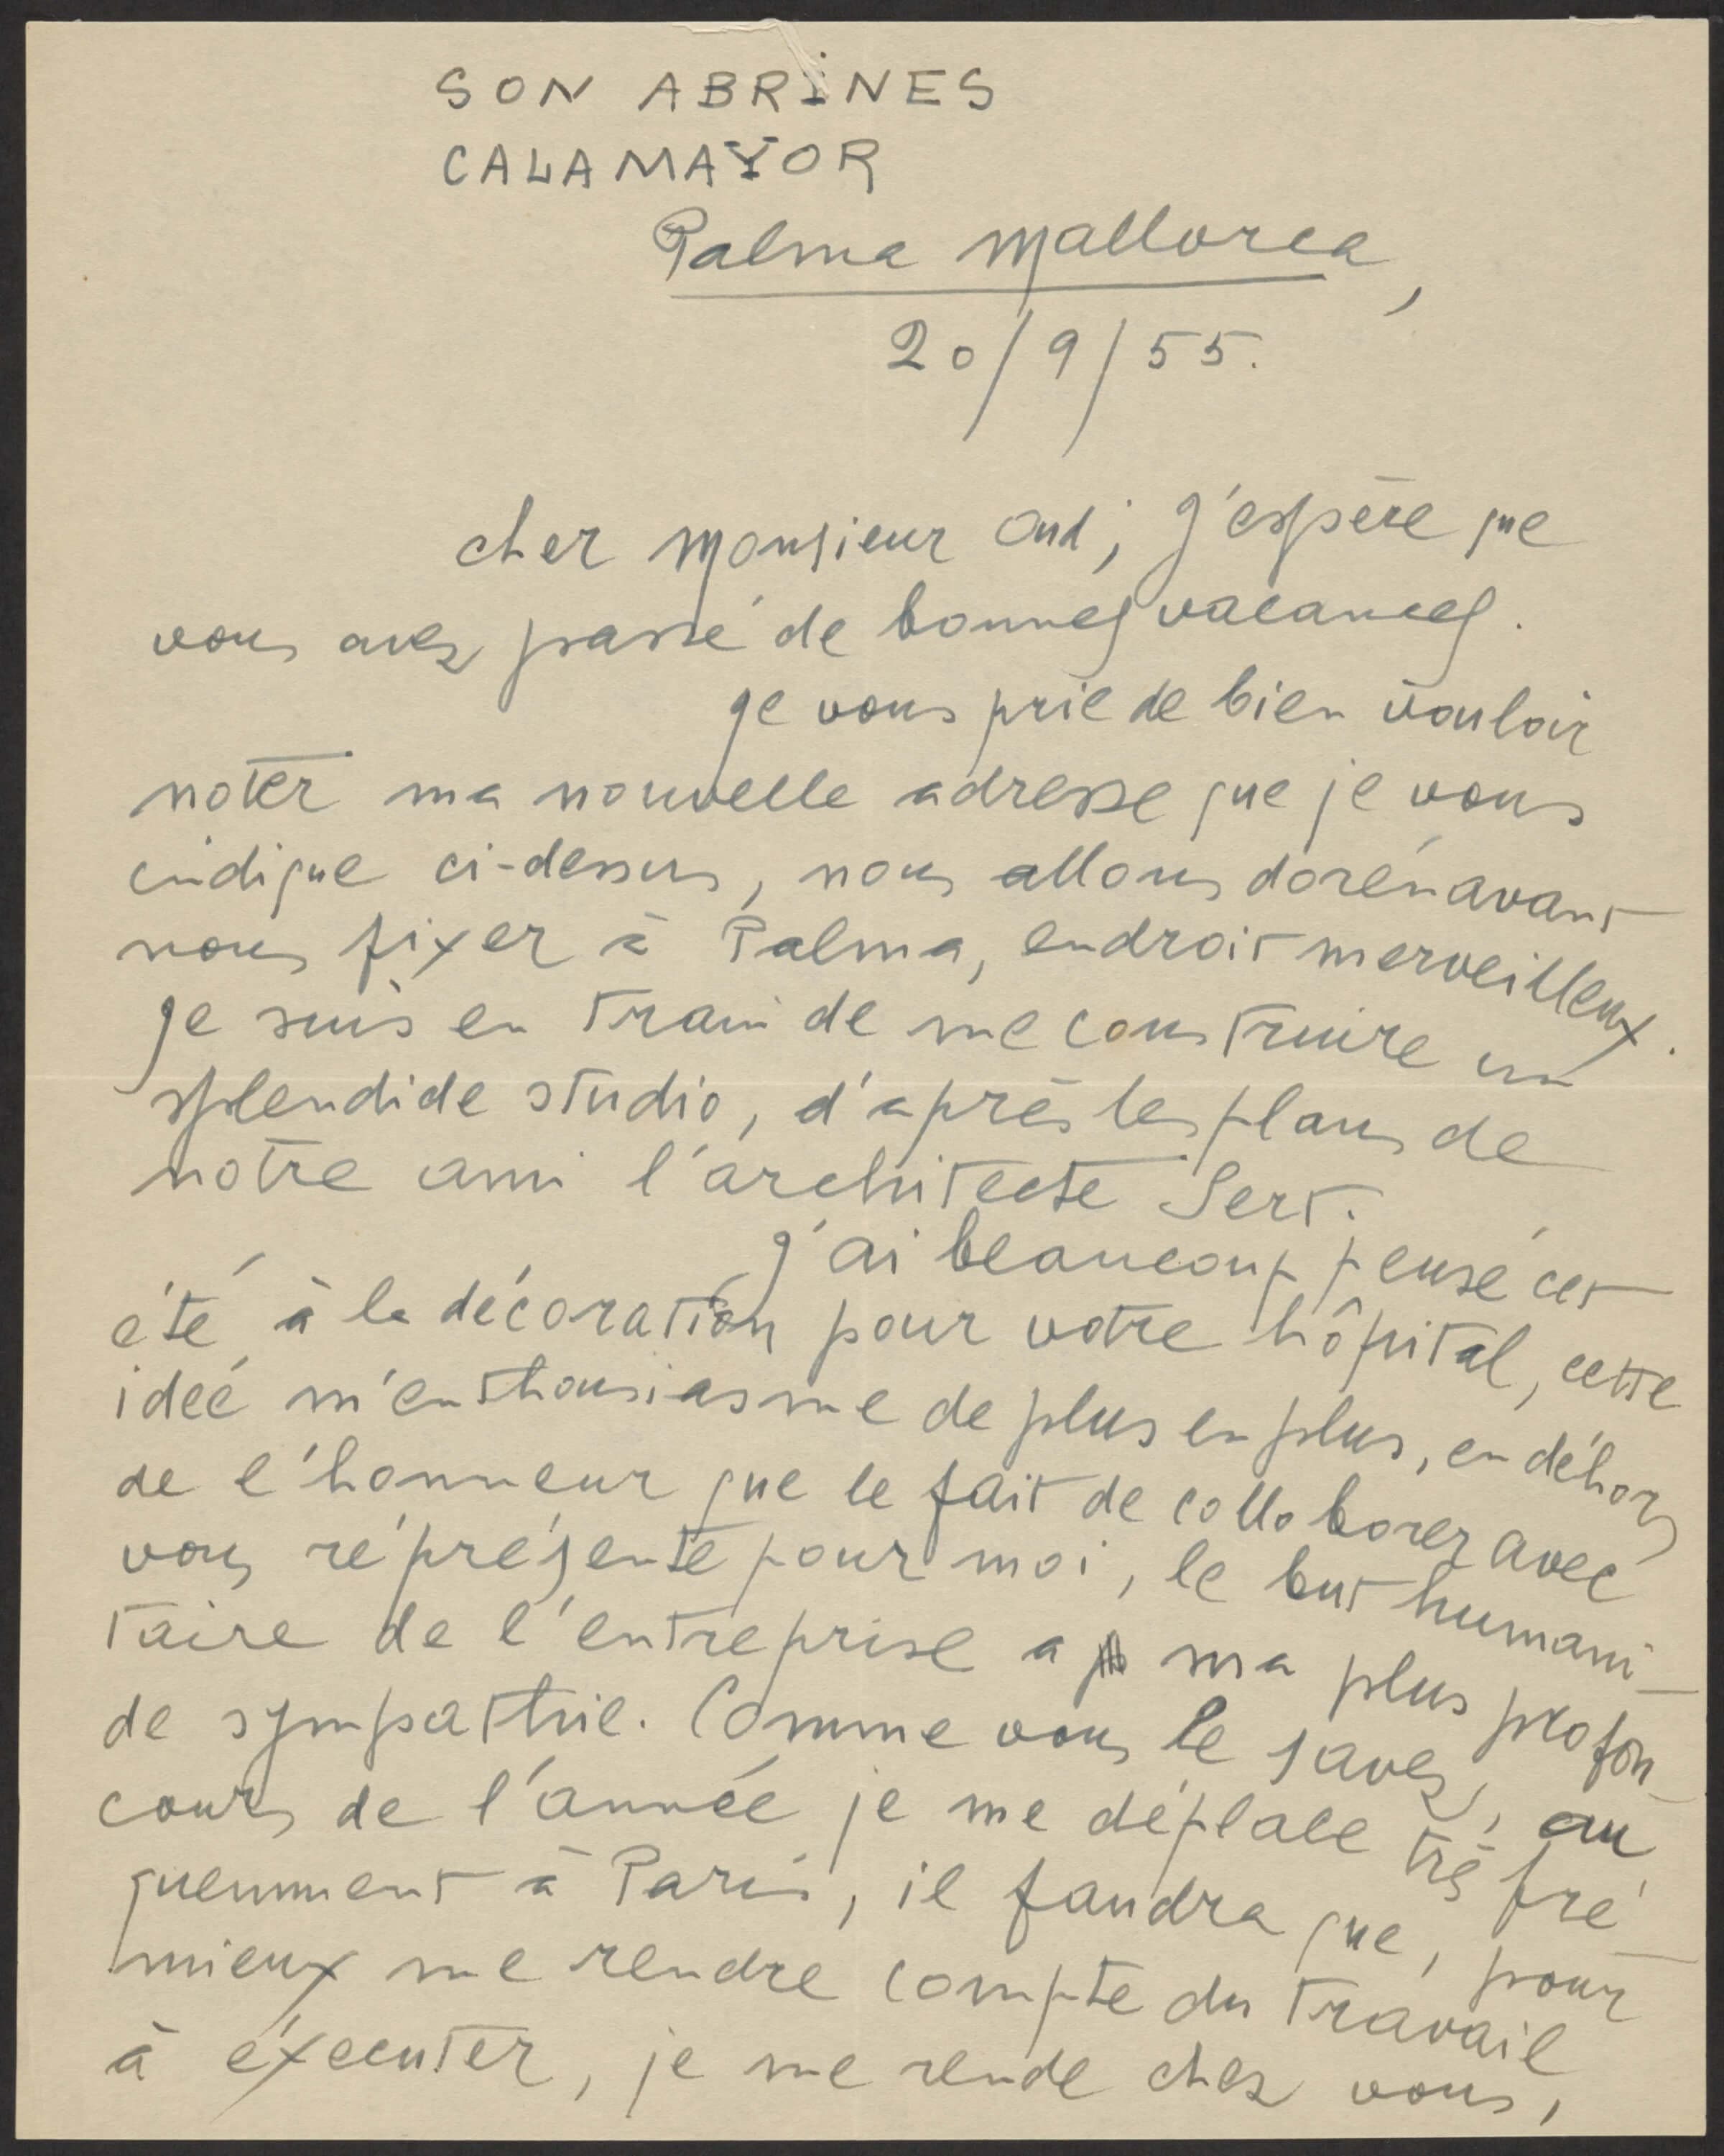 SON ABRINES
CALAMAYOR
Palma Mallorca,
20/9/55.
cher Monsieur Oud, J'espère que
vous avez passé de bonnes vacances.
Je vous prie de bien vouloir
noter ma nouvelle adresse que je vous
indique ci-dessus, nous allons dorénavant
nous fixer à Palma, endroit merveilleux.
Je suis en train de me construire un
splendide studio, d'après les plans de
notre ami l'architecte Sert.
J'ai beaucoup pensé cet
été à la décoration pour votre hôpital, cette
ideé m'enthousiasme de plus en plus, en déhors
de l'honneur que le fait de collaborer avec
vous réprésente pour moi, le but humani-
taire de l'entreprise a ma plus profon-
de sympathie. Comme vous le savez, au
cours de l'année je me déplace très fré-
quemment à Paris, il faudra que, pour
mieux me rendre compte du travail
à éxecuter, je me rende chez vous,